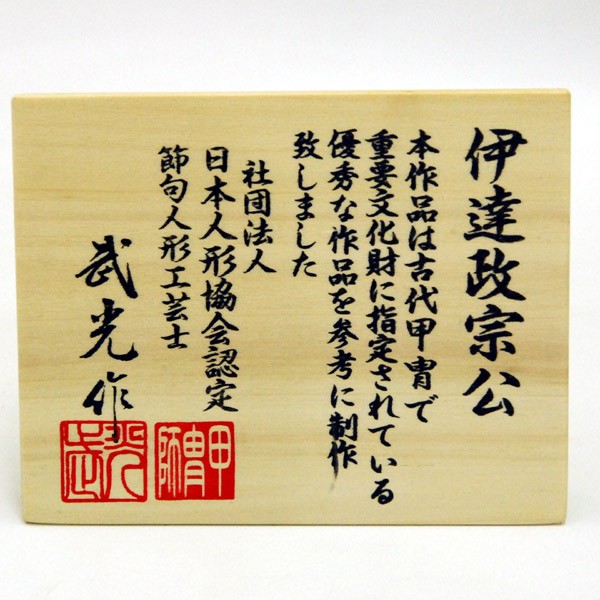 伊達政宗公
本作品は古代甲冑で
重要文化財に指定されている
優秀な作品を参考に制作
致しました
社団法人
日本人形協会認定
節句人形工芸士
武光作
甲冑師
武光